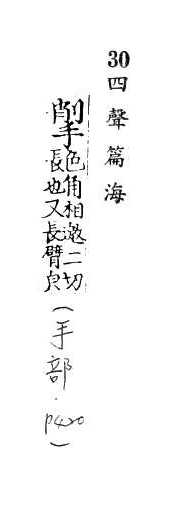 30四聲篇海
揱色角相邀二切
長也又長臂皃
(手部.p420)